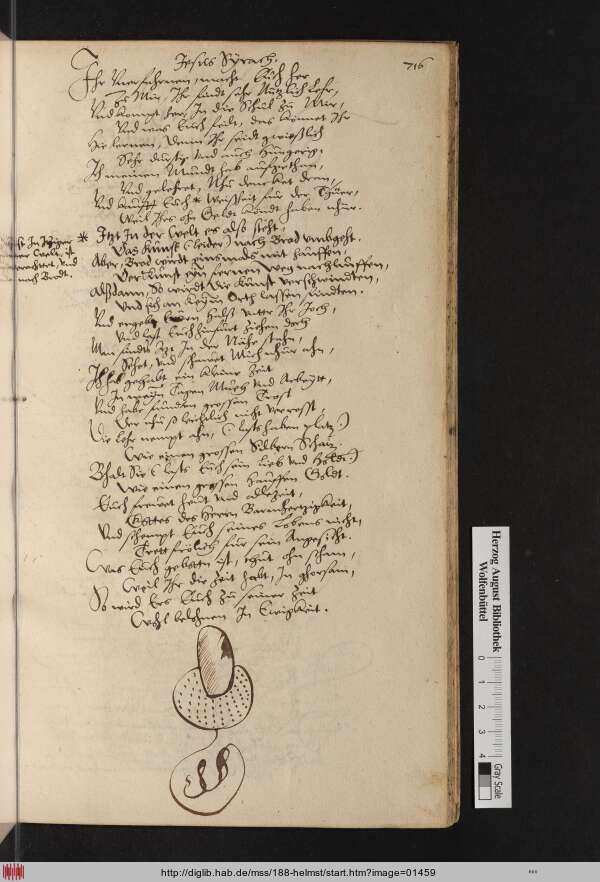 Jesus Syrach.
716
Ihr Unerfahrnen, macht Euch her
Zu Mir, Ihr findt sehr Nützlich Lehr,
Und kompt her In die Schul zu Mir,
Und was Euch feilt, das könnet Ihr
hie lernen, Denn Ihr seidt gewißlich
Sehr durstig und auch hungerig.
Ich meinen Mundt hab aufgethan,
Und gelehret, Nhu dencket dran,
Und kaufft Euch Weißheit für der Thüer,
Weil Ihrs ohn Geldt köndt haben nhur.
* Itzt In der Welt es also steht,
Das Kunst (leider) nach Brod umbgeht.
Aber, Brod wirdt einsmals mit hauffen,
Der Kunst von fernen weg nachlauffen,
Alßdann, So wirdt die Kunst verschwinden,
Und sich an keinem Orth lassen finden.
Und ergebt Ewren Halß unter Ihr Joch,
Und lasst Euch hinfurt ziehen doch
Man findt itzt In der Nähe stehn,
Sehet, und schawet Mich nhur ahn,
Ich hab gehabt ein kleine Zeit
In meinen Tagen Mueh und Arbeytt,
Und habe funden grossen Trost
Der nhu so leichtlich nicht verrost,
Die lehr nempt ahn, (lasts haben platz)
Wie einen grossen Silbern Schatz.
Bhalt Sie (lasts Euch sein Lieb und Holdt)
Wie einen grossen Hauffen Goldt.
Euch frewet heut und allezeit,
Gottes des Herrn Barmhertzigkeit,
Und schempt Euch seines Lobens nicht,
Trett frölich für sein Angesicht.
Was Euch gebotten ist, thut ohn scham,
Weil Ihr die Zeit habt, In ghorsam,
So wird Ers Euch zu seiner Zeit
Wohl belohnen In Ewigkeit.
Welt ist
verachtet, und
nach Brodt.
Herzog August Bibliothek
Wolfenbüttel
0 1 2 3 4
Gray Scale
http://diglib.hab.de/mss/188-helmst/start.htm?image=01459